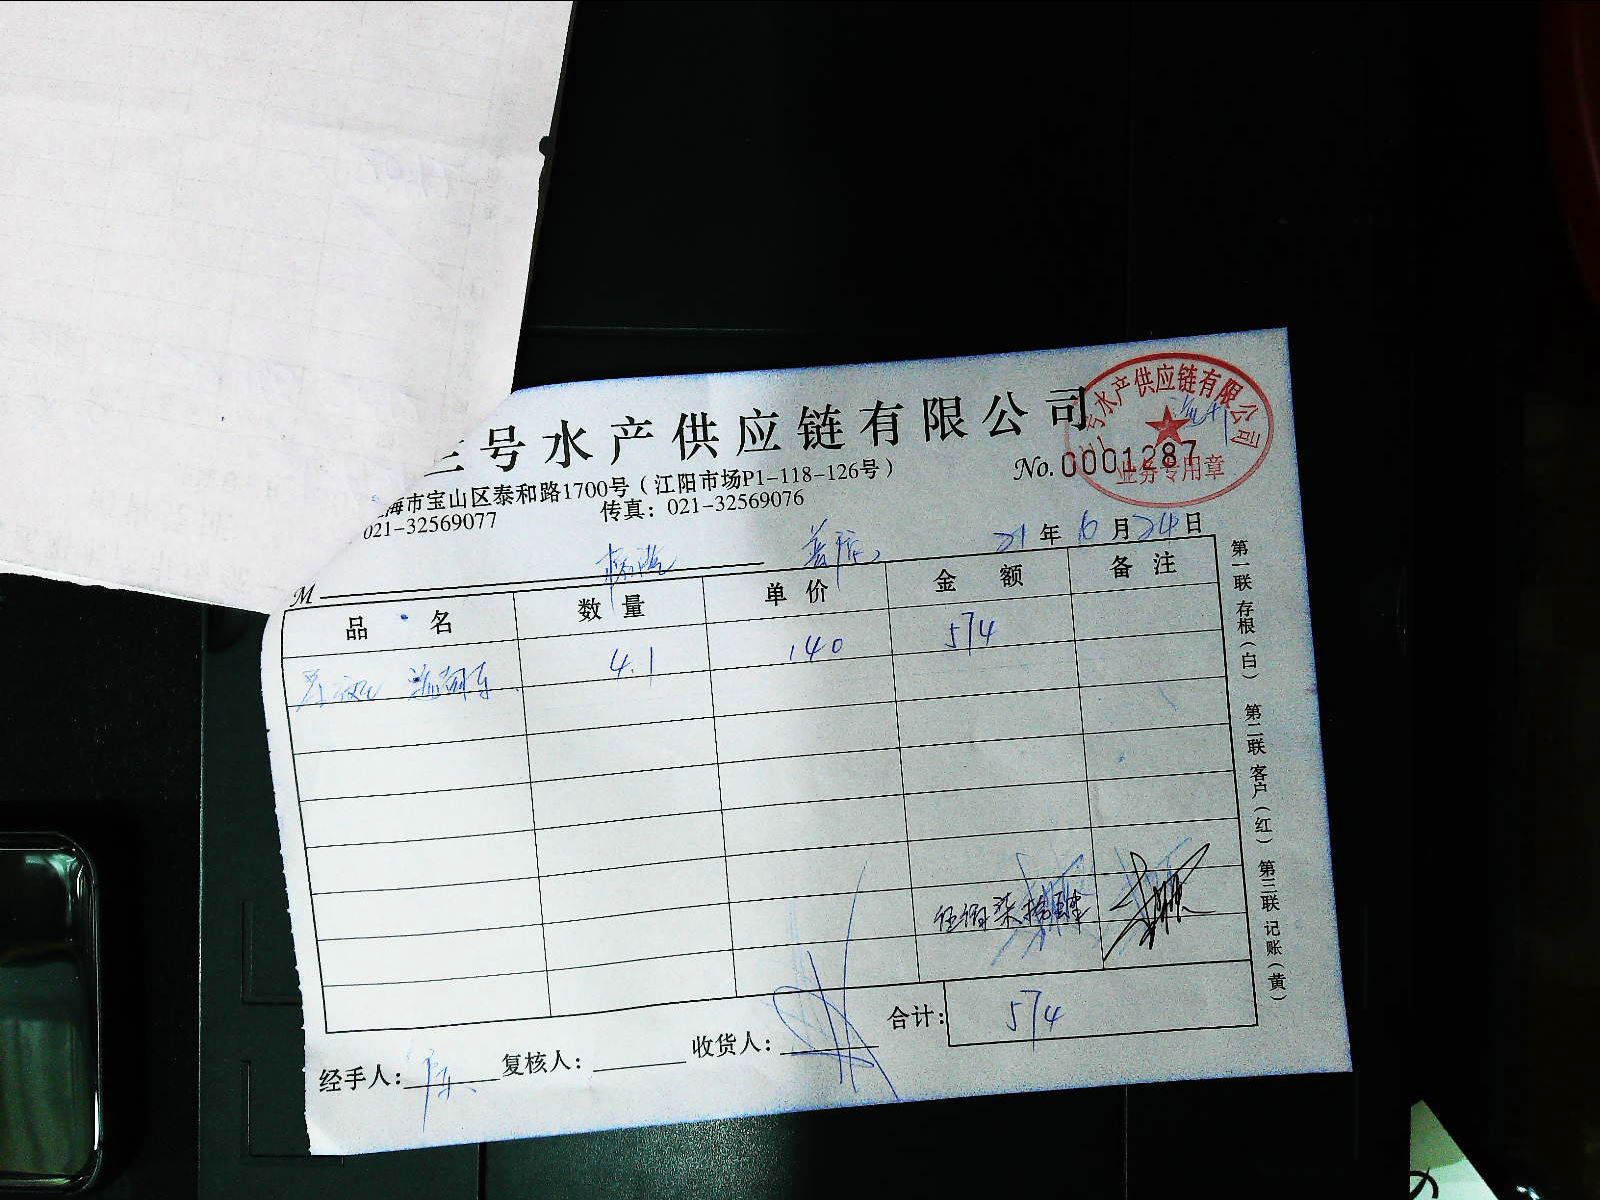 三号水产供应链有限公司
号水产供应链有限公司
业务专用章
No. 0001287
海市宝山区泰和路1700号（江阳市场P1-118-126号）
021-32569077 传真：021-32569076
21年6月24日
M
品名 数量 单价 金额 备注
4.1 140 574
合计：574
经手人： 复核人： 收货人：
第一联 存根（白） 第二联 客户（红） 第三联 记账（黄）